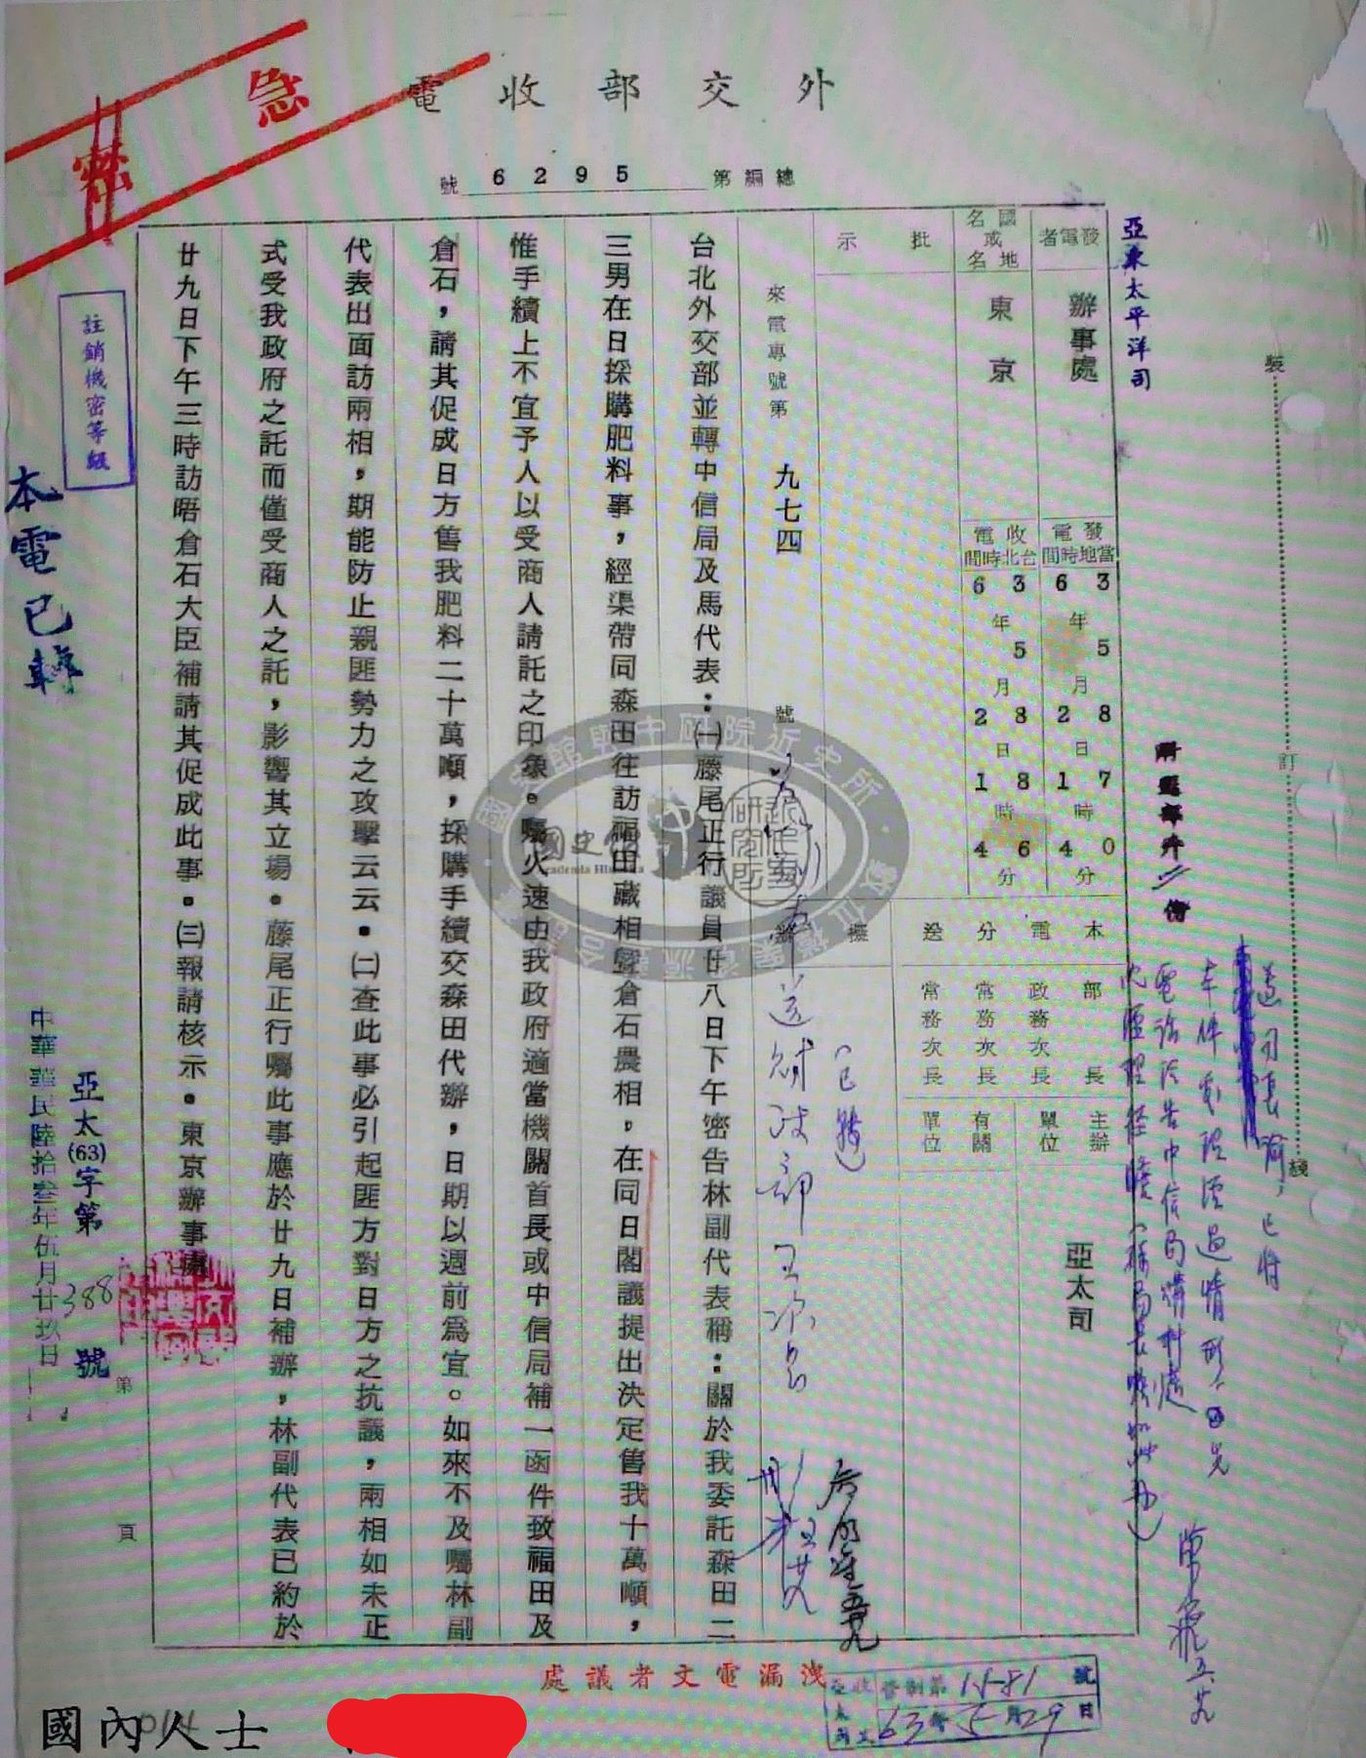 急
密
外交部收電
總編第 6295 號
亞東太平洋司
發電者 辦事處
國名或地名 東京
發電當地時間 63年5月28日17時40分
收電台北時間 63年5月28日18時46分
批示
本電分送
部長
政務次長
常務次長
常務次長
主辦單位 亞太司
有關單位
擬辦
來電專號第 九七四 號
台北外交部並轉中信局及馬代表：㈠藤尾正行議員廿八日下午密告林副代表稱：關於我委託森田二
三男在日採購肥料事，經渠帶同森田往訪福田藏相暨倉石農相。在同日閣議提出決定售我十萬噸，
惟手續上不宜予人以受商人請託之印象。囑火速由我政府適當機關首長或中信局補一函件致福田及
倉石，請其促成日方售我肥料二十萬噸，採購手續交森田代辦，日期以週前爲宜。如來不及囑林副
代表出面訪兩相，期能防止親匪勢力之攻擊云云。㈡查此事必引起匪方對日方之抗議，兩相如未正
式受我政府之託而僅受商人之託，影響其立場。藤尾正行囑此事應於廿九日補辦，林副代表已約於
廿九日下午三時訪晤倉石大臣補請其促成此事。㈢報請核示。東京辦事處
（已轉）
註銷機密等級
本電已轉
亞太(63)字第 388 號
中華民國陸拾叁年伍月廿玖日
第 頁
裝
訂
線
洩漏電文者議處
63年5月29日
國內人士